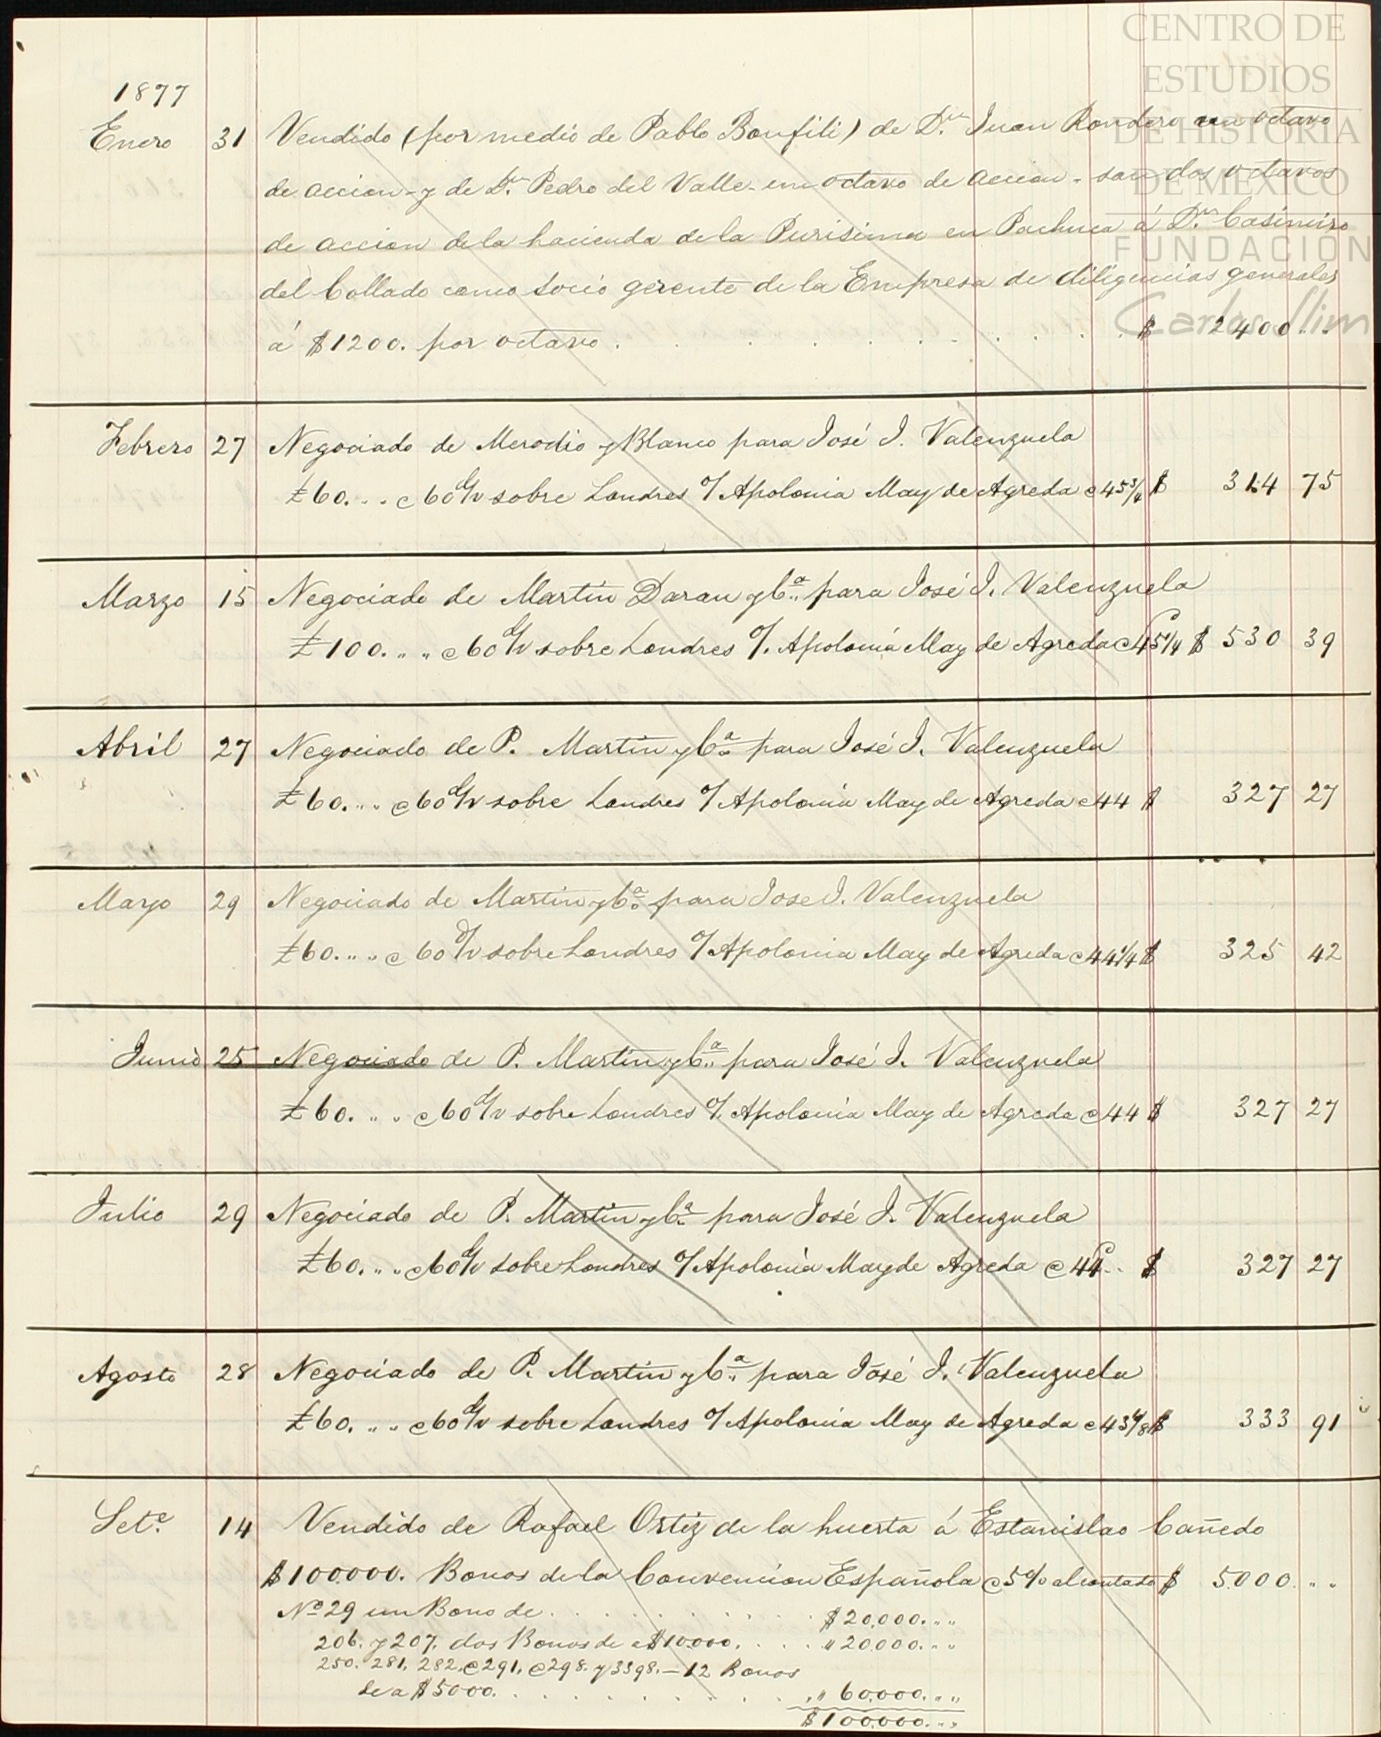 CENTRO DE
ESTUDIOS
DE HISTORIA
DE MÉXICO
FUNDACIÓN
Carlos Slim
1877
Enero 31 Vendido (por medio de Pablo Bonfili) de Dn. Juan Rondero un octavo
de accion y de Dn. Pedro del Valle un octavo de accion - son dos octavos
de accion de la hacienda de la Purisima en Pachuca á Dn. Casimiro
del Collado como Socio gerente de la Empresa de diligencias generales
á $1200. por octavo . . . . . . . . . . $ 2400 ..
Febrero 27 Negociado de Merodio y Blanco para José J. Valenzuela
£60. .. @ 60 d/v sobre Londres o/ Apolonia May de Agreda @ 45 3/4 $ 314 75
Marzo 15 Negociado de Martin Daran y Ca. para José J. Valenzuela
£100. .. .. @ 60 d/v sobre Londres o/. Apolonia May de Agreda @ 45 1/4 $ 530 39
Abril 27 Negociado de P. Martin y Ca. para José J. Valenzuela
£60. .. .. @ 60 d/v sobre Londres o/ Apolonia May de Agreda @ 44 $ 327 27
Mayo 29 Negociado de Martin y Ca. para Jose J. Valenzuela
£60. .. .. @ 60 d/v sobre Londres o/ Apolonia May de Agreda @ 44 1/4 $ 325 42
Junio 25 Negociado de P. Martin y Ca. para José J. Valenzuela
£60. .. .. @ 60 d/v sobre Londres o/. Apolonia May de Agreda @ 44 $ 327 27
Julio 29 Negociado de P. Martin y Ca. para José J. Valenzuela
£60. .. .. @ 60 d/v sobre Londres o/ Apolonia May de Agreda @ 44 .. $ 327 27
Agosto 28 Negociado de P. Martin y Ca. para José J. Valenzuela
£60. .. .. @ 60 d/v sobre Londres o/ Apolonia May de Agreda @ 43 1/8 $ 333 91
Sete. 14 Vendido de Rafael Ortiz de la huerta á Estanislao Cañedo
$100.000. Bonos de la Convencion Española @ 5% al contado $ 5.000. ..
No. 29 un Bono de . . . . . . . . . . $20,000. ..
206. y 207. dos Bonos de a $10.000. . . . . " 20.000. ..
250. 281. 282. @ 291. @ 298. y 3398. - 12 Bonos
de a $5000. . . . . . . . . . . " 60,000. ..
$100,000. ..